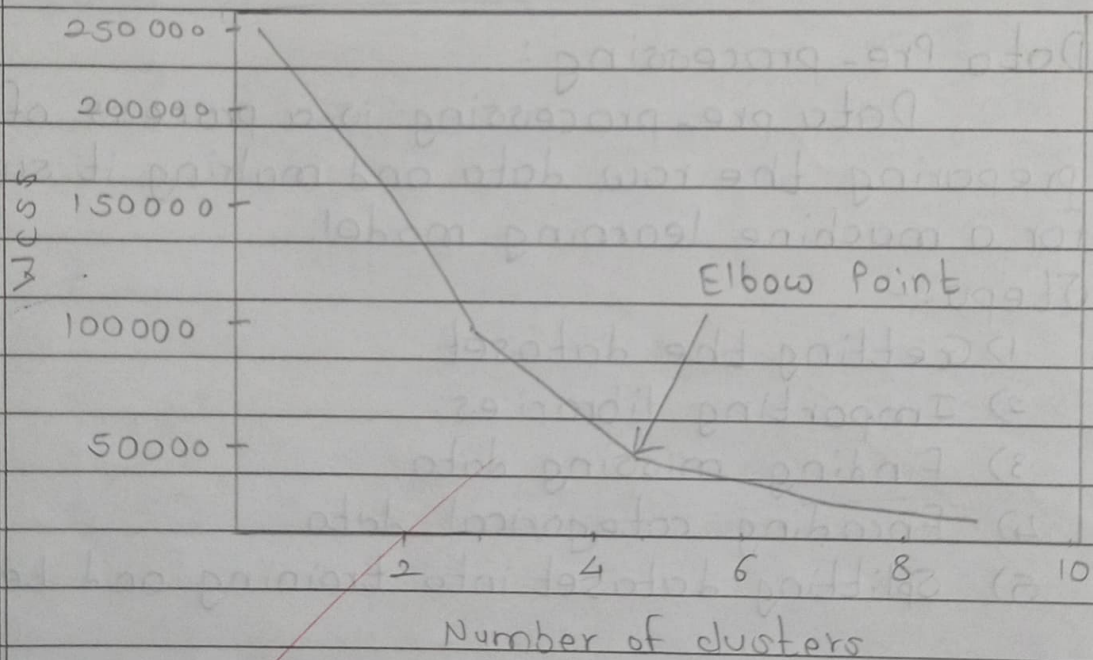 250 000
200000
150000
100000
50000
WCSS
Elbow Point
2 4 6 8 10
Number of clusters